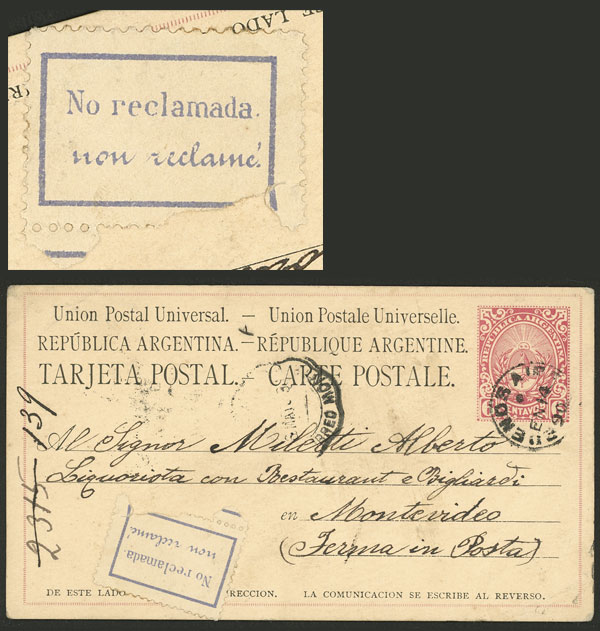 RE LADO
No reclamada.
non reclamé.
Union Postal Universal. — Union Postale Universelle.
REPÚBLICA ARGENTINA. — RÉPUBLIQUE ARGENTINE.
TARJETA POSTAL. — CARTE POSTALE.
REPUBLICA ARGENTINA
CENTAVOS
BUENOS AIRES
EN 14
90
MONT
2315—139
Al Signor Milesti Alberto
Liquorista con Restaurant e Bigliardi
en Montevideo
(Ferma in Posta)
No reclamada.
non reclamé.
DE ESTE LADO RECCION. LA COMUNICACION SE ESCRIBE AL REVERSO.